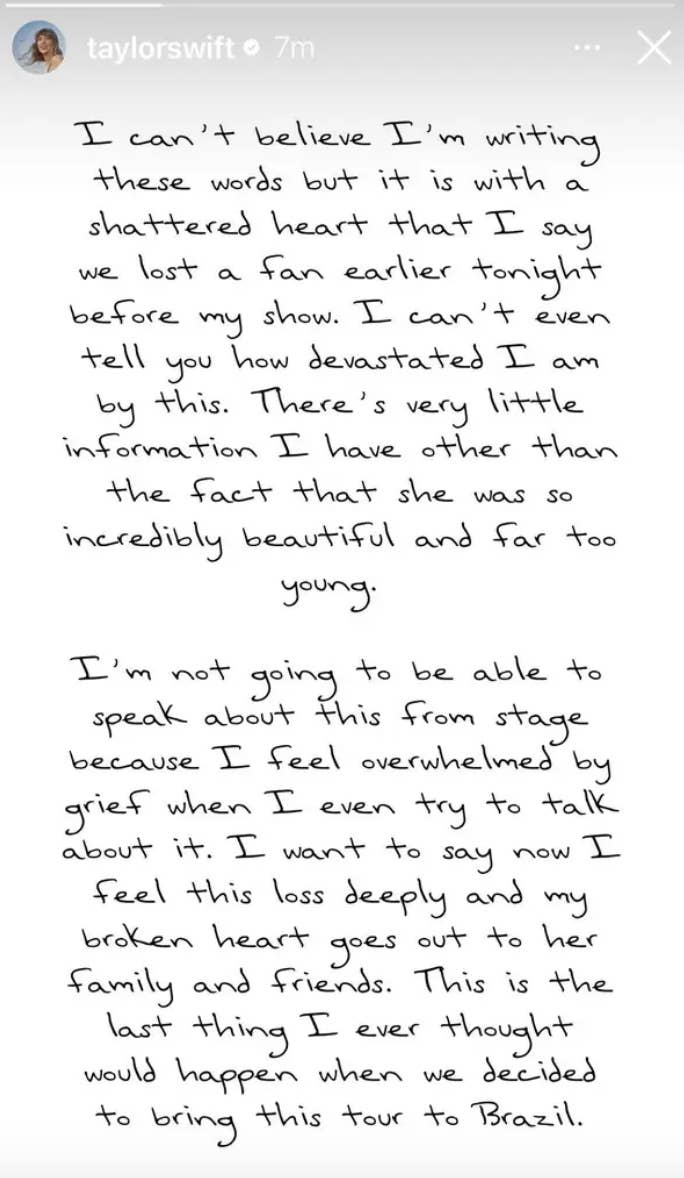 taylorswift 7m
I can't believe I'm writing
these words but it is with a
shattered heart that I say
we lost a fan earlier tonight
before my show. I can't even
tell you how devastated I am
by this. There's very little
information I have other than
the fact that she was so
incredibly beautiful and far too
young.
I'm not going to be able to
speak about this from stage
because I feel overwhelmed by
grief when I even try to talk
about it. I want to say now I
feel this loss deeply and my
broken heart goes out to her
family and friends. This is the
last thing I ever thought
would happen when we decided
to bring this tour to Brazil.